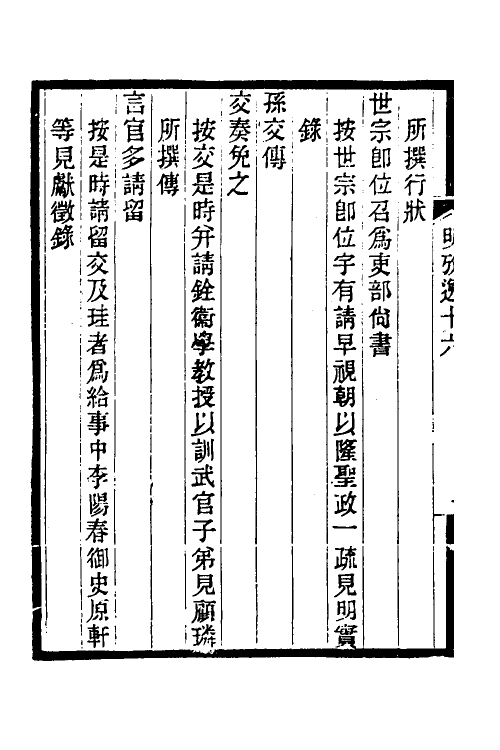 明攷逸十六
所撰行狀
世宗卽位召爲吏部尙書
按世宗卽位字有請早視朝以隆聖政一疏見明實
錄
孫交傳
交奏免之
按交是時幷請銓衞學教授以訓武官子弟見顧璘
所撰傳
言官多請留
按是時請留交及珪者爲給事中李陽春御史原軒
等見獻徵錄